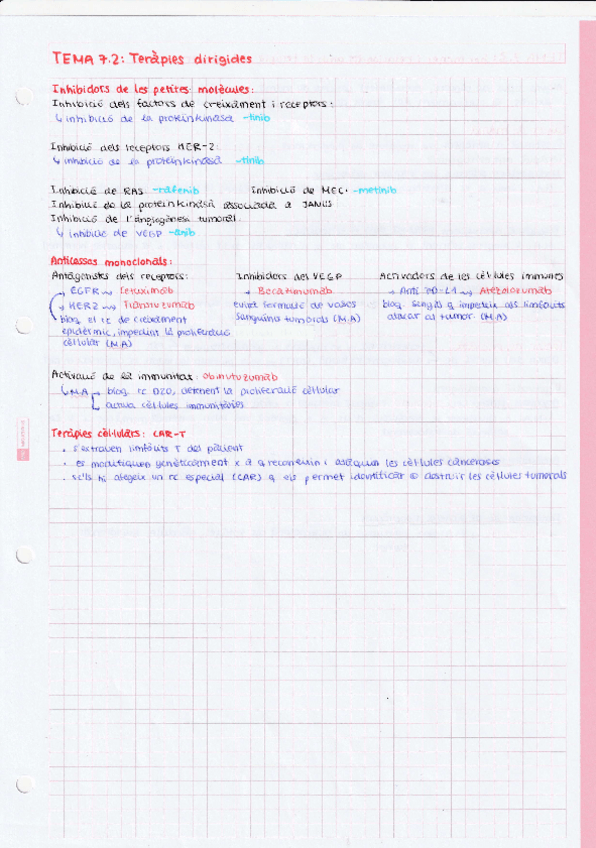 TEMA 7.2: Teràpies dirigides
Inhibidors de les petites molècules:
Inhibició dels factors de creixament i receptors:
↳ inhibició de la proteinkinasa -tinib
Inhibició dels receptors HER-2:
↳ inhibició de la proteinkinasa -tinib
Inhibició de RAS -rafenib Inhibició de MEC. -metinib
Inhibició de la proteinkinasa associada a JANUS
Inhibició de l'angiogènesi tumoral.
↳ inhibició de VEGP -anib
Anticossos monoclonals:
Antagonistes dels receptors: Inhibidors del VEGP Activadors de les cèl·lules immunes
EGFR → Cetuximab → Bevatimumab → Anti PD-L1 → Atezolizumab
HER2 → Transtuzumab evita formació de vasos bloq. senyals q impedeix als limfòcits
bloq. el rc de creixement sanguinis tumorals (M.A) atacar al tumor. (M.A)
epidèrmic, impedint la proliferació
cèl·lular (M.A)
Activació de la immunitat: obinutuzumab
↳ M.A → bloq. rc D20, detenent la proliferació cèl·lular
→ activa cèl·lules immunitàries
Teràpies cèl·lulars: CAR-T
• s'extrauen limfòcits T del pacient
• es modifiquen genèticament x a q reconeguin i ataquin les cèl·lules canceroses
• se'ls hi afegeix un rc especial (CAR) q els permet identificar © destruir les cèl·lules tumorals